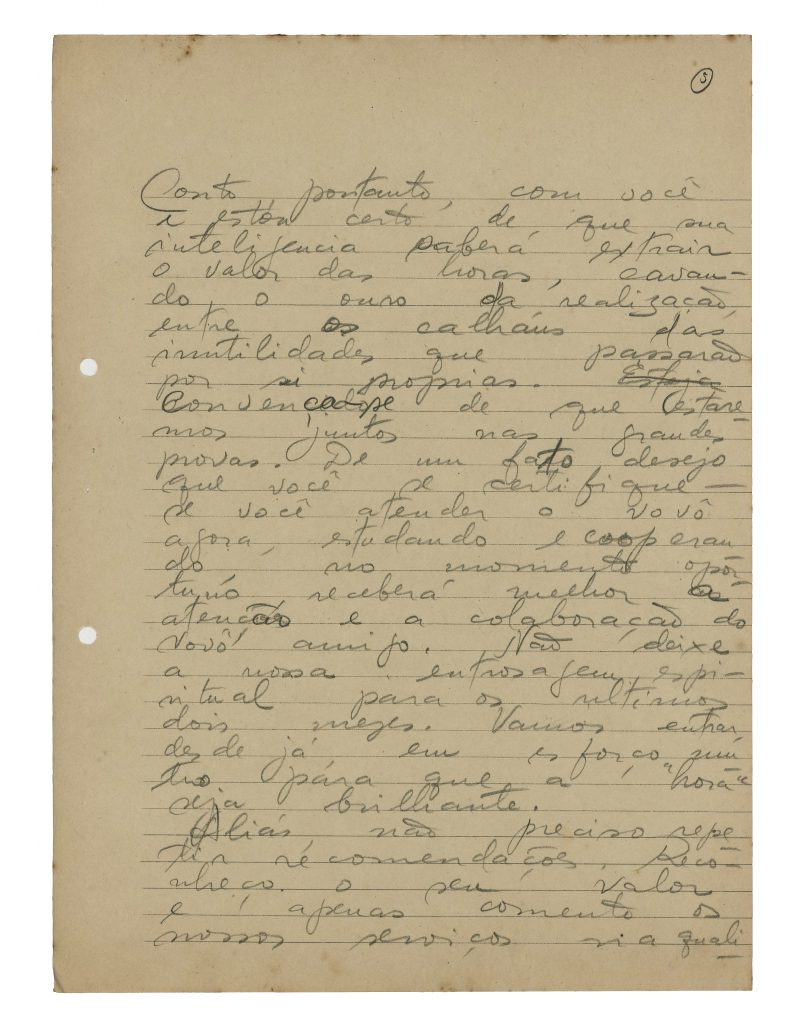 5
Conto, portanto, com você
e estou certo de que sua
inteligencia saberá extrair
o valor das horas, cavan-
do o ouro da realização
entre os calháus das
inutilidades que passarão
por si proprias. Esteja
Convencido de que estare
mos juntos nas grandes
provas. De um fato desejo
que você se certifique —
se você atender o vovô
agora, estudando e cooperan
do, no momento opor
tuno receberá melhor as
atenções e a colaboração do
vovô amigo. Não deixe
a nossa entrosagem espi-
ritual para os ultimos
dois mezes. Vamos entrar,
desde já em esforço mu
tuo para que a "hora"
seja brilhante.
Aliás, não preciso repe
tir recomendações. Reco-
nheço o seu valor
e apenas comento os
nossos serviços na quali